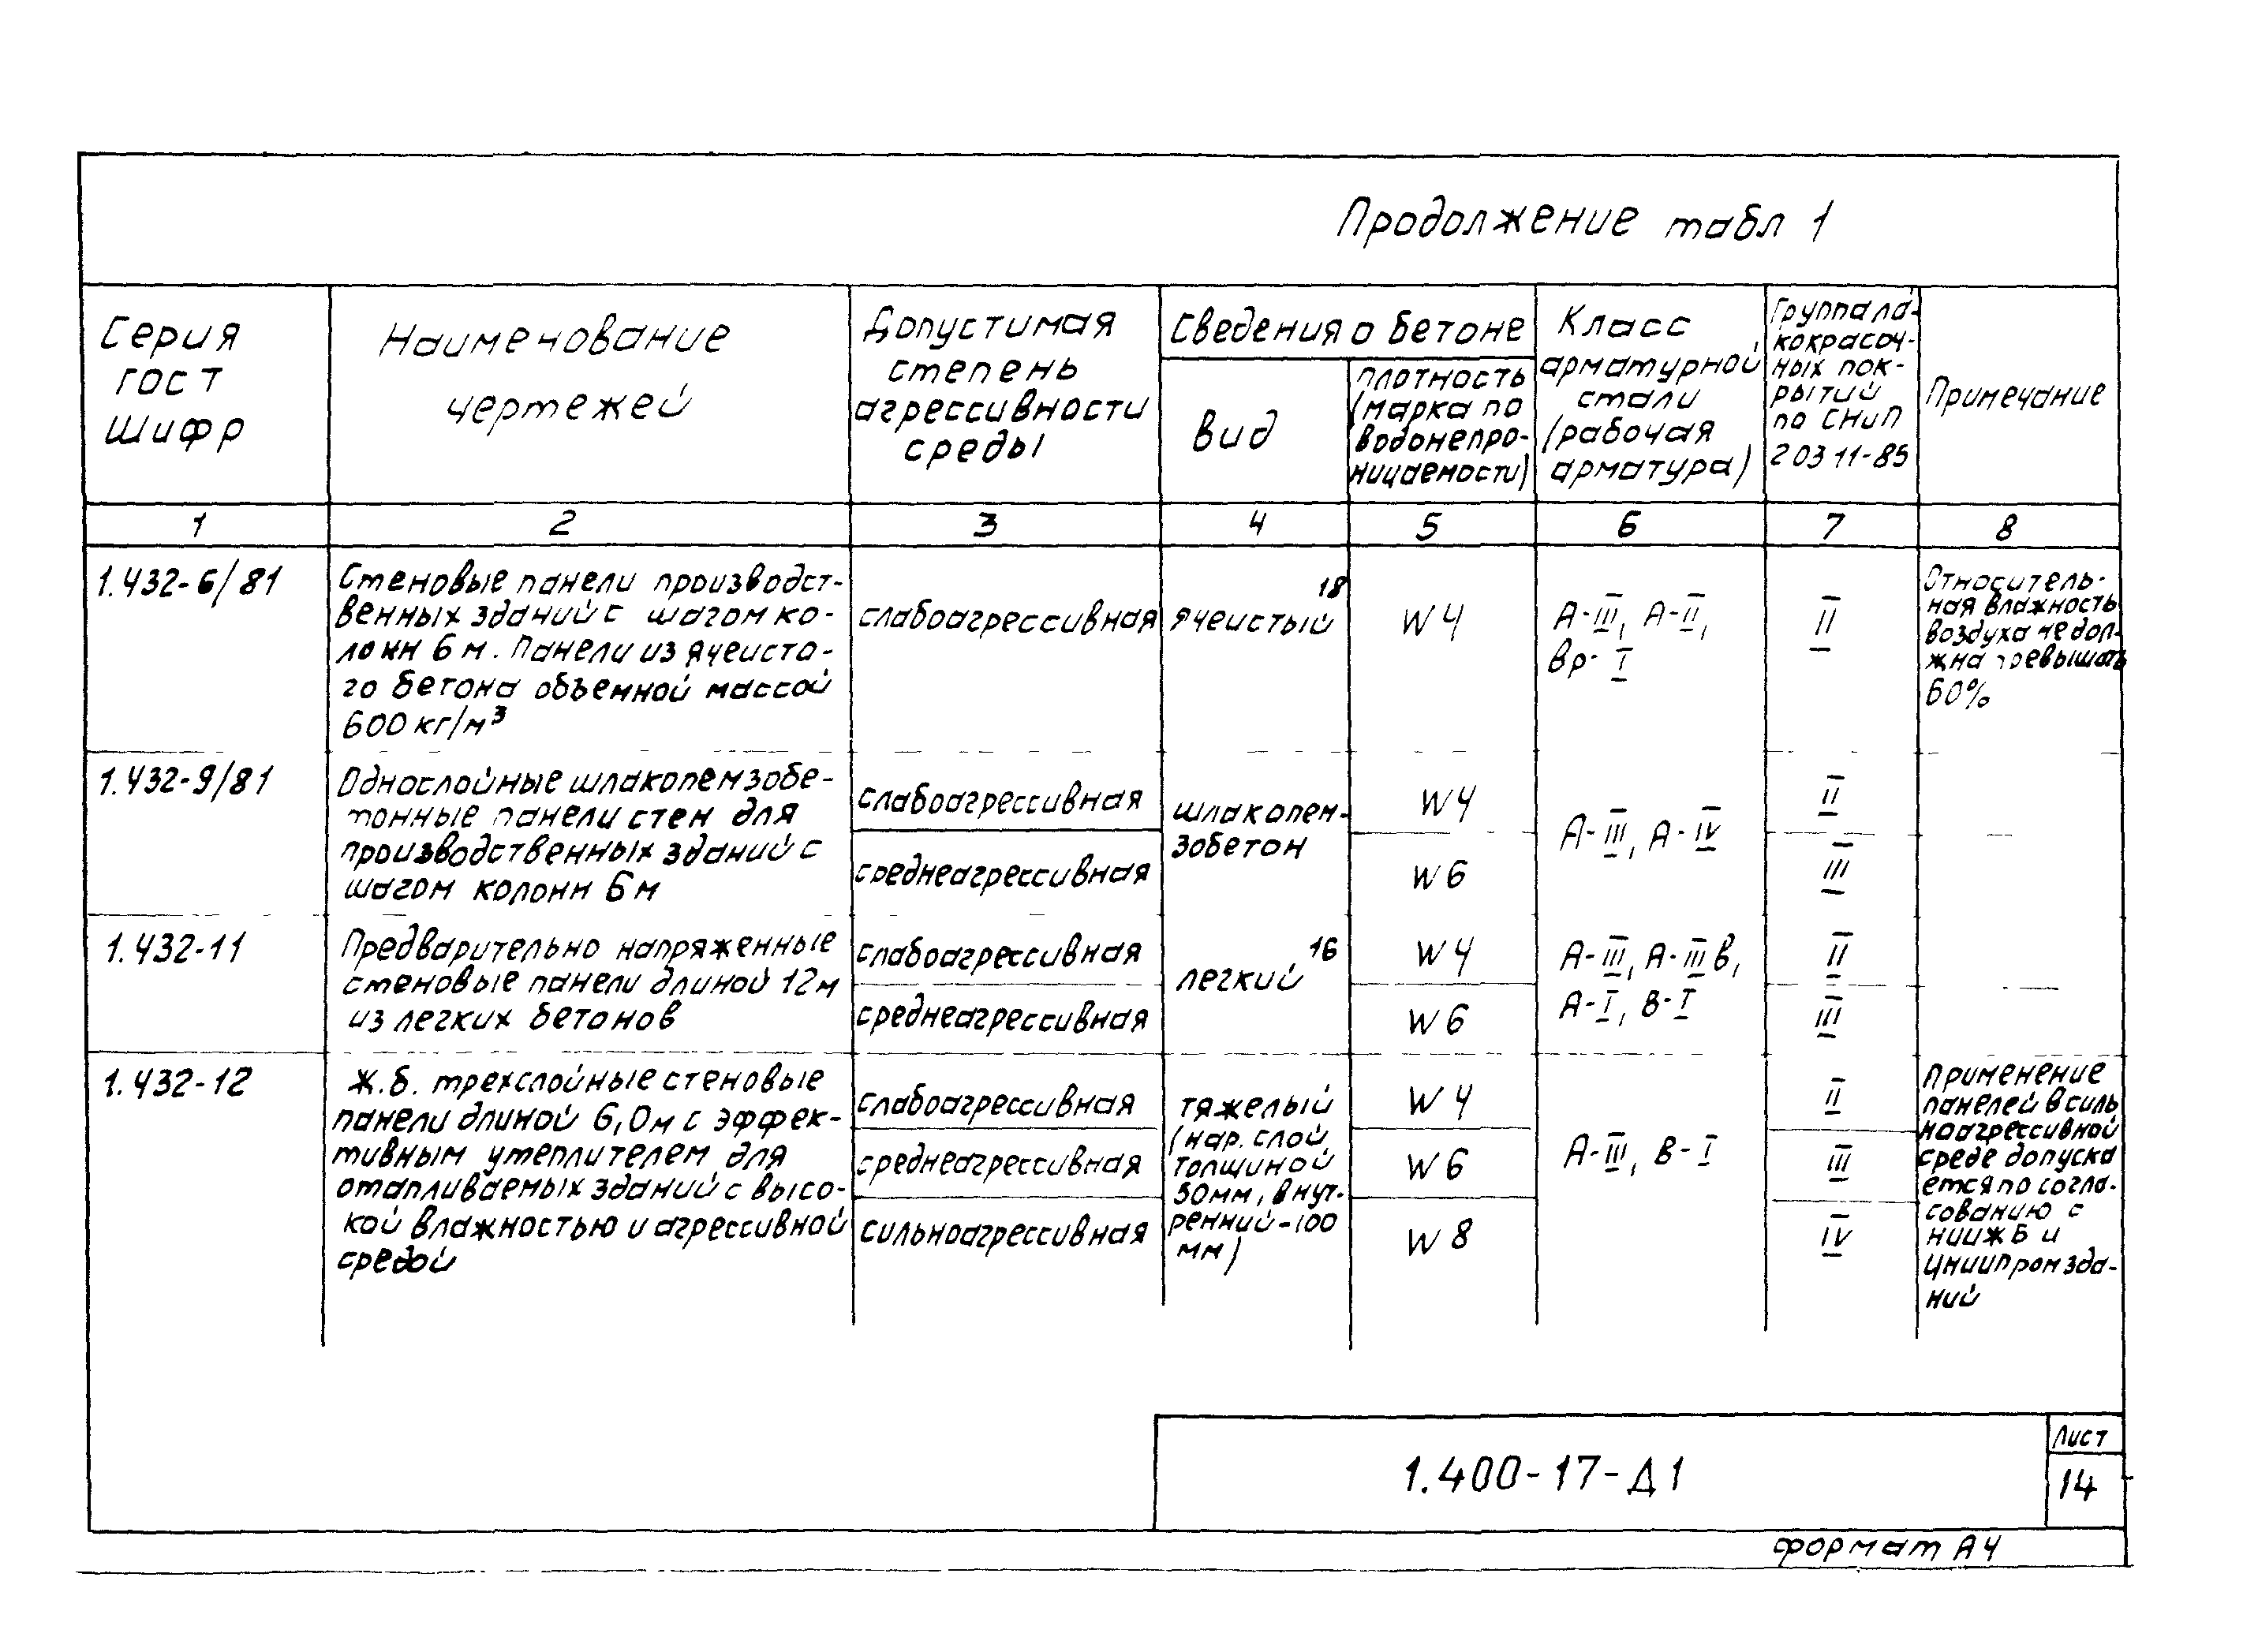 Продолжение табл 1
Серия
ГОСТ
Шифр
Наименование
чертежей
Допустимая
степень
агрессивности
среды
Сведения о бетоне
Вид
плотность
(марка по
водонепро-
ницаемости)
Класс
арматурной
стали
(рабочая
арматура)
Группа ла-
кокрасоч-
ных пок-
рытий
по СНиП
2 03 11-85
Примечание
1 2 3 4 5 6 7 8
1.432-6/81
Стеновые панели производст-
венных зданий с шагом ко-
лонн 6 м. Панели из ячеисто-
го бетона объемной массой
600 кг/м³
слабоагрессивная
ячеистый 18
W4
А-III, А-II,
Вр-I
II
Относитель-
ная влажность
воздуха не дол-
жна превышать
60%
1.432-9/81
Однослойные шлакопемзобе-
тонные панели стен для
производственных зданий с
шагом колонн 6 м
слабоагрессивная
среднеагрессивная
шлакопем-
зобетон
W4
W6
А-III, А-IV
II
III
—
1.432-11
Предварительно напряженные
стеновые панели длиной 12м
из легких бетонов
слабоагрессивная
среднеагрессивная
легкий 16
W4
W6
А-III, А-III в,
А-I, В-I
II
III
—
1.432-12
Ж.б. трехслойные стеновые
панели длиной 6,0м с эффек-
тивным утеплителем для
отапливаемых зданий с высо-
кой влажностью и агрессивной
средой
слабоагрессивная
среднеагрессивная
сильноагрессивная
тяжелый
(нар. слой
толщиной
50мм, внут-
ренний-100
мм)
W4
W6
W8
А-III, В-I
II
III
IV
Применение
панелей в силь
ноагрессивной
среде допуска
ется по согла-
сованию с
НИИЖБ и
ЦНИИПромзда-
ний
1.400-17-Д1
Лист
14
формат А4